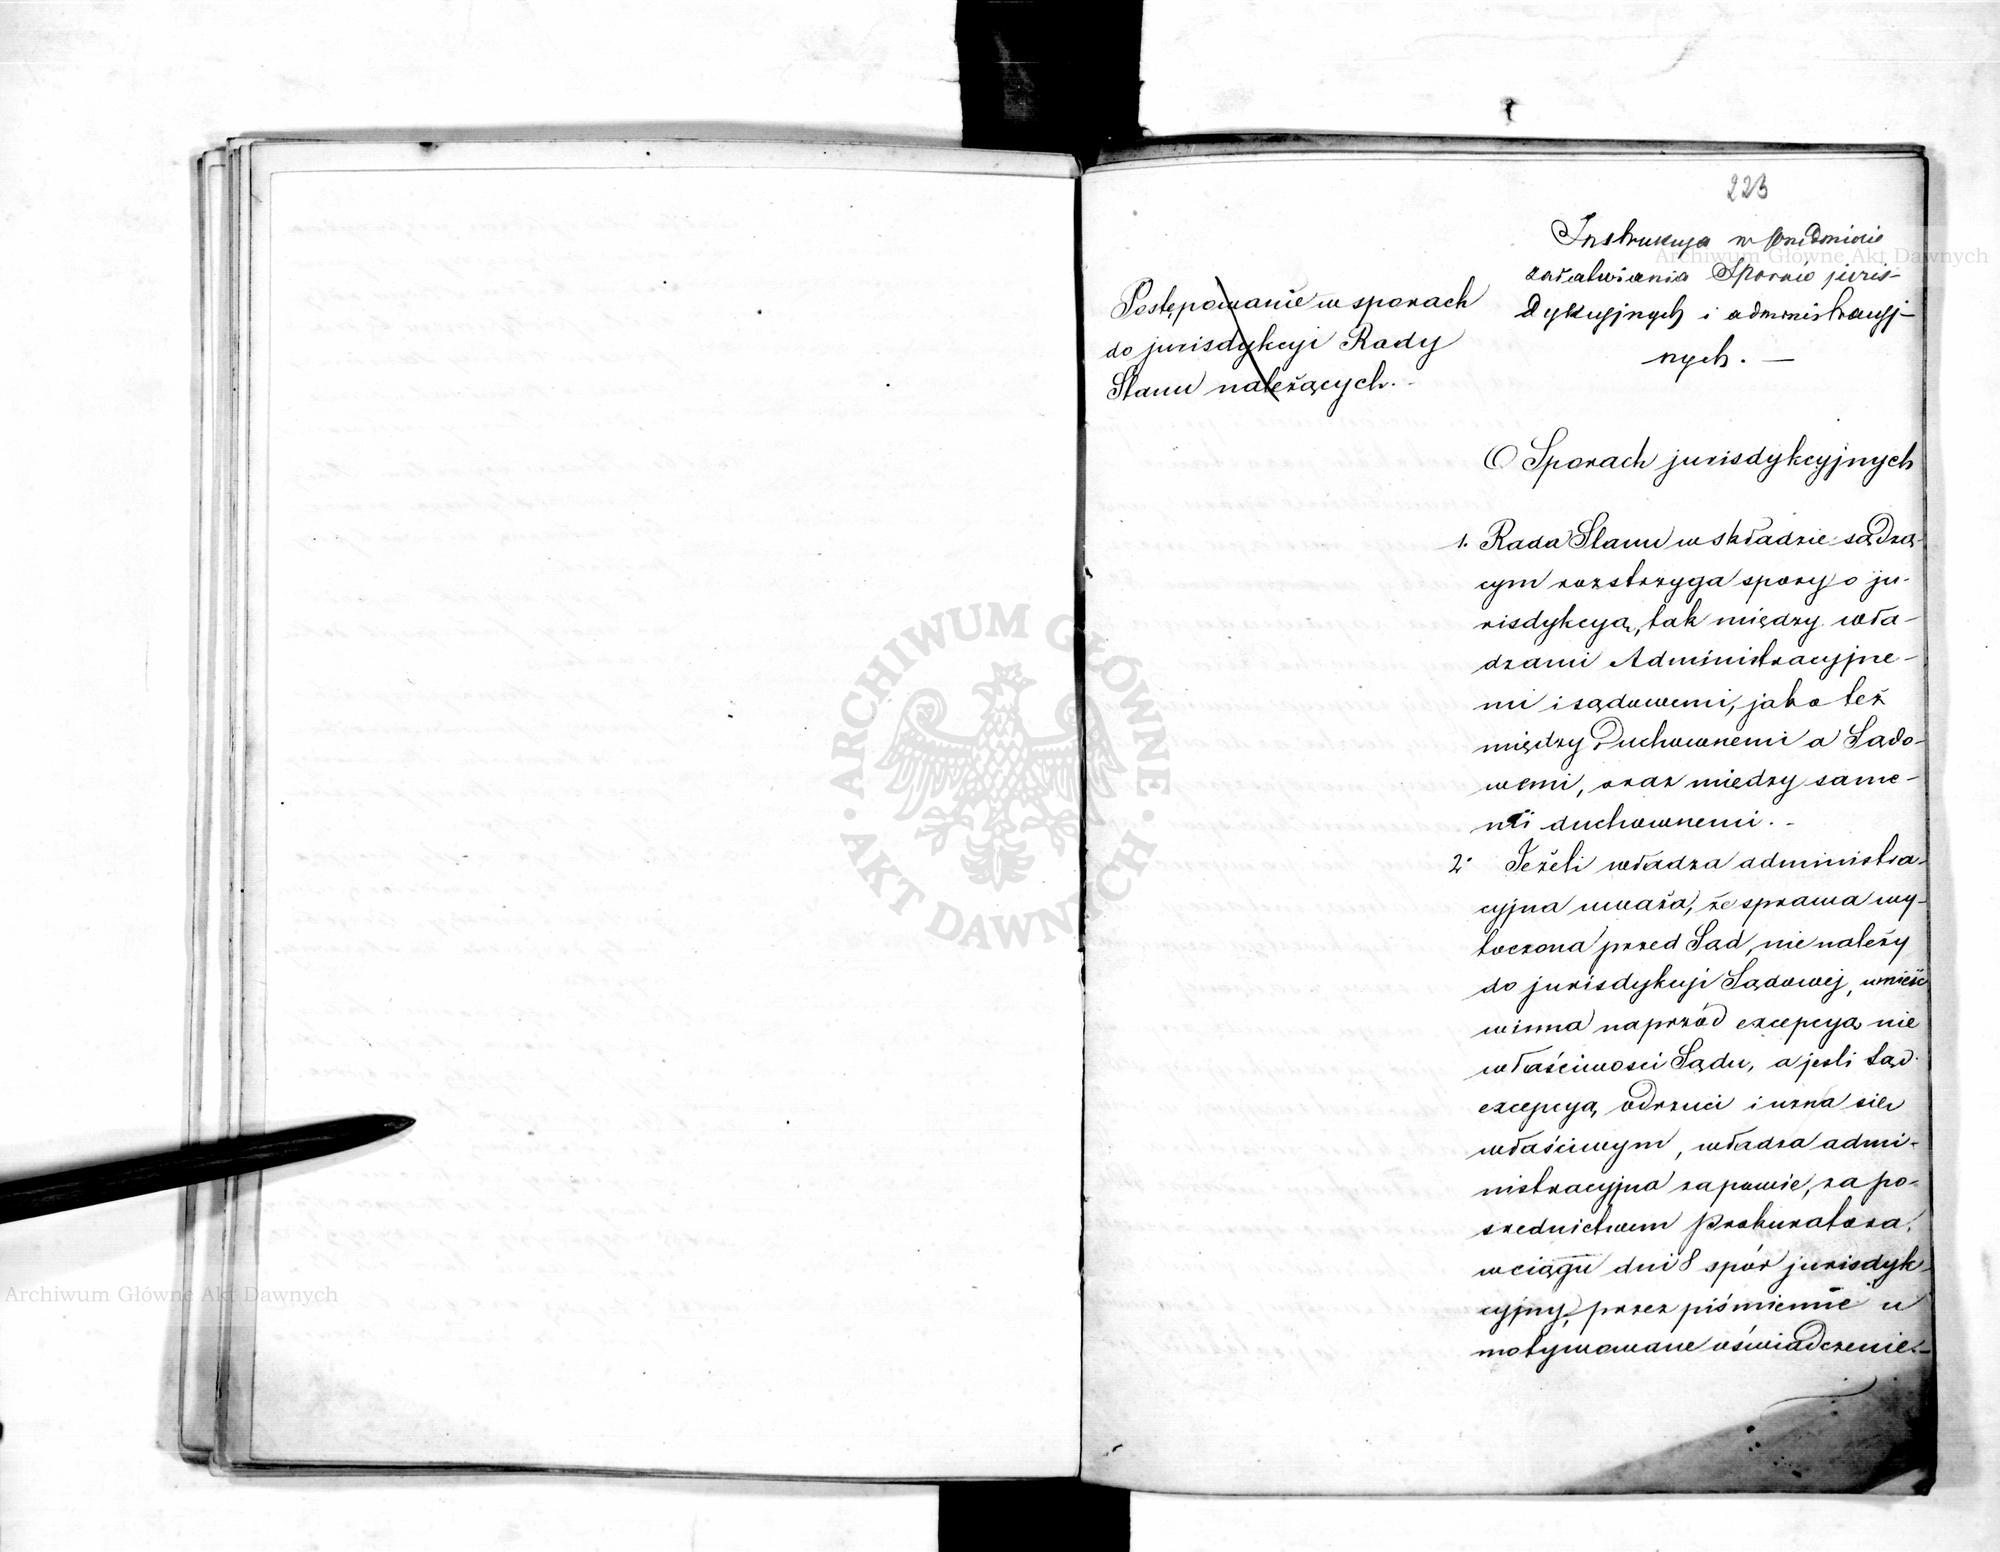 223
Instrukcya w przedmiocie
załatwiania Sporów juris-
dykcyjnych i administracyj-
nych. —
Postępowanie w sporach
do jurisdykcyi Rady
Stanu należących. -
O Sporach jurisdykcyjnych
1. Rada Stanu w składzie sądzą-
cym rozstrzyga spory o ju-
risdykcyą, tak między wła-
dzami Administracyjne-
mi i sądowemi, jako też
między Duchownemi a Sądo-
wemi, oraz między same-
mi duchownemi. -
2. Jeżeli władza administra-
cyjna uważa, że sprawa wy-
toczona przed Sąd, nie należy
do jurisdykcyi Sądowej, wnieść
winna naprzód excepcyą nie
właściwości Sądu, a jeśli Sąd
excepcyą odrzuci i uzna się
właściwym, władza admi-
nistracyjna zapowie, za po-
średnictwem Prokuratora,
w ciągu dni 8 spór jurisdyk-
cyjny, przez piśmienne u
motywowane oświadczenie. -
ARCHIWUM GŁÓWNE · AKT DAWNYCH ·
Archiwum Główne Akt Dawnych
Archiwum Główne Akt Dawnych